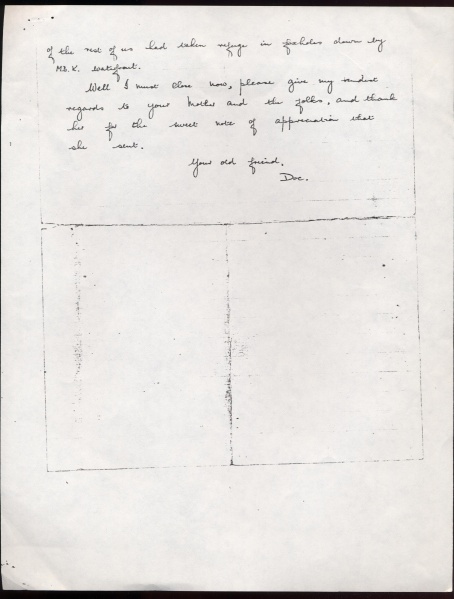 of the rest of us had taken refuge in foxholes down by
MD.K. watefront.
Well I must close now, please give my kindest
regards to your Mother and the folks, and thank
her for the sweet note of appreciation that
she sent.
Your old friend.
Doc.